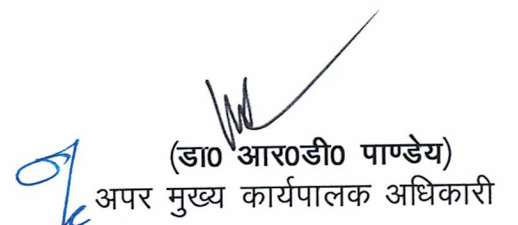 (डा0 आर0डी0 पाण्डेय)
अपर मुख्य कार्यपालक अधिकारी